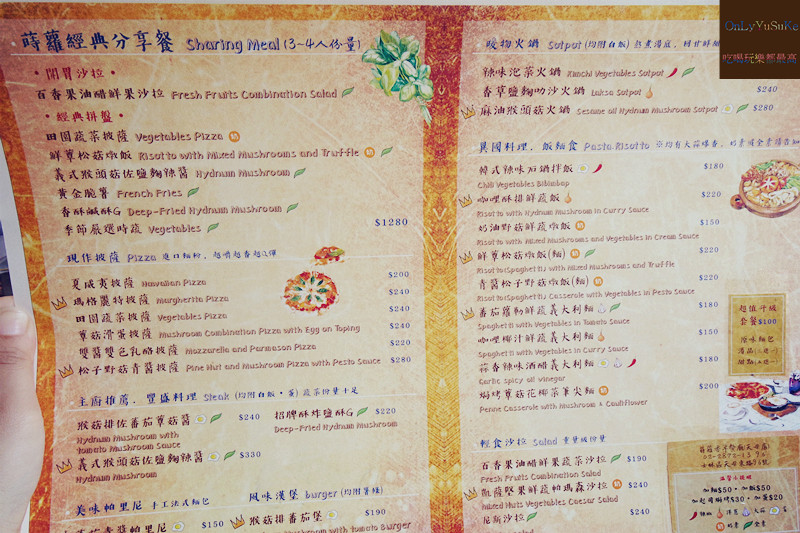 OnLyYuSuKe
吃喝玩樂都最高
蒔蘿經典分享餐 Sharing Meal (3~4人份量)
• 開胃沙拉 •
百香果油醋鮮果沙拉 Fresh Fruits Combination Salad
• 經典拼盤 •
田園蔬菜披薩 Vegetables Pizza
鮮蕈松菇燉飯 Risotto with Mixed Mushrooms and Truffle
義式猴頭菇佐鹽麴辣醬 Hydnum Mushroom
黃金脆薯 French Fries
香酥鹹酥G Deep-Fried Hydnum Mushroom
季節嚴選時蔬 Vegetables $1280
現作披薩 Pizza
夏威夷披薩 Hawaiian Pizza $200
瑪格麗特披薩 Margherita Pizza $240
田園蔬菜披薩 Vegetables Pizza $240
蕈菇滑蛋披薩 Mushroom Combination Pizza with Egg on Toping $240
雙醬雙色乳酪披薩 Mozzarella and Parmason Pizza $240
松子野菇青醬披薩 Pine Nut and Mushroom Pizza with Pesto Sauce $280
主廚推薦、豐盛料理 Steak (均附白飯、羹) 蔬菜份量十足
猴菇排佐番茄蕈菇醬 $240
Hydnum Mushroom with
Tomato Mushroom Sauce
招牌酥炸鹽酥G $220
Deep-Fried Hydnum Mushroom
義式猴頭菇佐鹽麴辣醬 $330
Hydnum Mushroom
美味帕里尼 手工法式麵包
青醬帕里尼 $150
風味漢堡 burger (均附薯條)
猴菇排番茄堡 $190
Hydnum Mushroom with Tomato Burger
暖物火鍋 Sotpot (均附白飯)
辣味泡菜火鍋 Kimchi Vegetables Sotpot
香草鹽麴叻沙火鍋 Laksa Sotpot $240
麻油猴頭菇火鍋 Sesame oil Hydnum Mushroom Sotpot $280
異國料理、飯麵食 Pasta Risotto
韓式辣味石鍋拌飯 $180
Chili Vegetables Bibimbap
咖哩酥排鮮蔬飯 $220
Risotto with Hydnum Mushroom in Curry Sauce
奶油野菇鮮蔬燉飯 $150
Risotto with Mixed Mushrooms and Vegetables in Cream Sauce
鮮蕈松菇燉飯(麵) $220
Risotto(Spaghetti) with Mixed Mushrooms and Truffle
青醬松子野菇燉飯(麵) $220
Risotto(Spaghetti) Casserole with Vegetables in Pesto Sauce
番茄蘿勒鮮蔬義大利麵 $180
Spaghetti with Vegetables in Tomato Sauce
咖哩椰汁鮮蔬義大利麵 $150
Spaghetti with Vegetables in Curry Sauce
蒜香辣味酒醋義大利麵 $180
Garlic spicy oil vinegar
焗烤蕈菇花椰菜筆尖麵 $200
Penne Casserole with Mushroom & Cauliflower
超值升級
套餐$100
原味麵包
湯品(二選一)
甜點(二選一)
輕食沙拉 Salad 重量級份量
百香果油醋鮮果蔬菜沙拉 $190
Fresh Fruits Combination Salad
凱薩堅果鮮蔬帕瑪森沙拉 $240
Mixed Nuts Vegetables Caesar Salad
尼斯沙拉 $240
加麵$50・加飯$50
加起司焗烤$30・加蛋$20